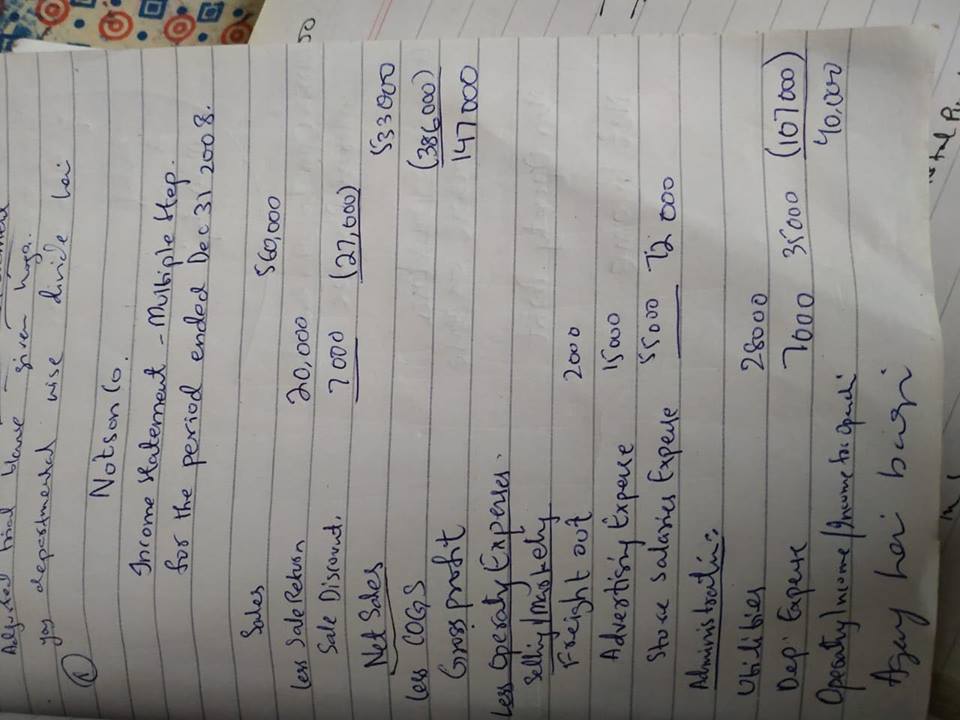 Adjusted trial blance given hoga.
yay departmental wise divide hai
1
Notson Co.
Income Statement - Multiple Step.
for the period ended Dec 31 2008.
Sales 560,000
less Sale Return 20,000
Sale Discount. 7000 (27,000)
Net Sales 533000
less COGS (386000)
Gross profit 147000
Less Operatig Expenses.
Selling/Marketig
Freight out 2000
Advertising Expense 15000
Store Salaries Expense 55000 72000
Administration:
Utilities 28000
Dep. Expense 7000 35000 (107000)
Operating Income/Income for 40,000
Agay hai baqi
50